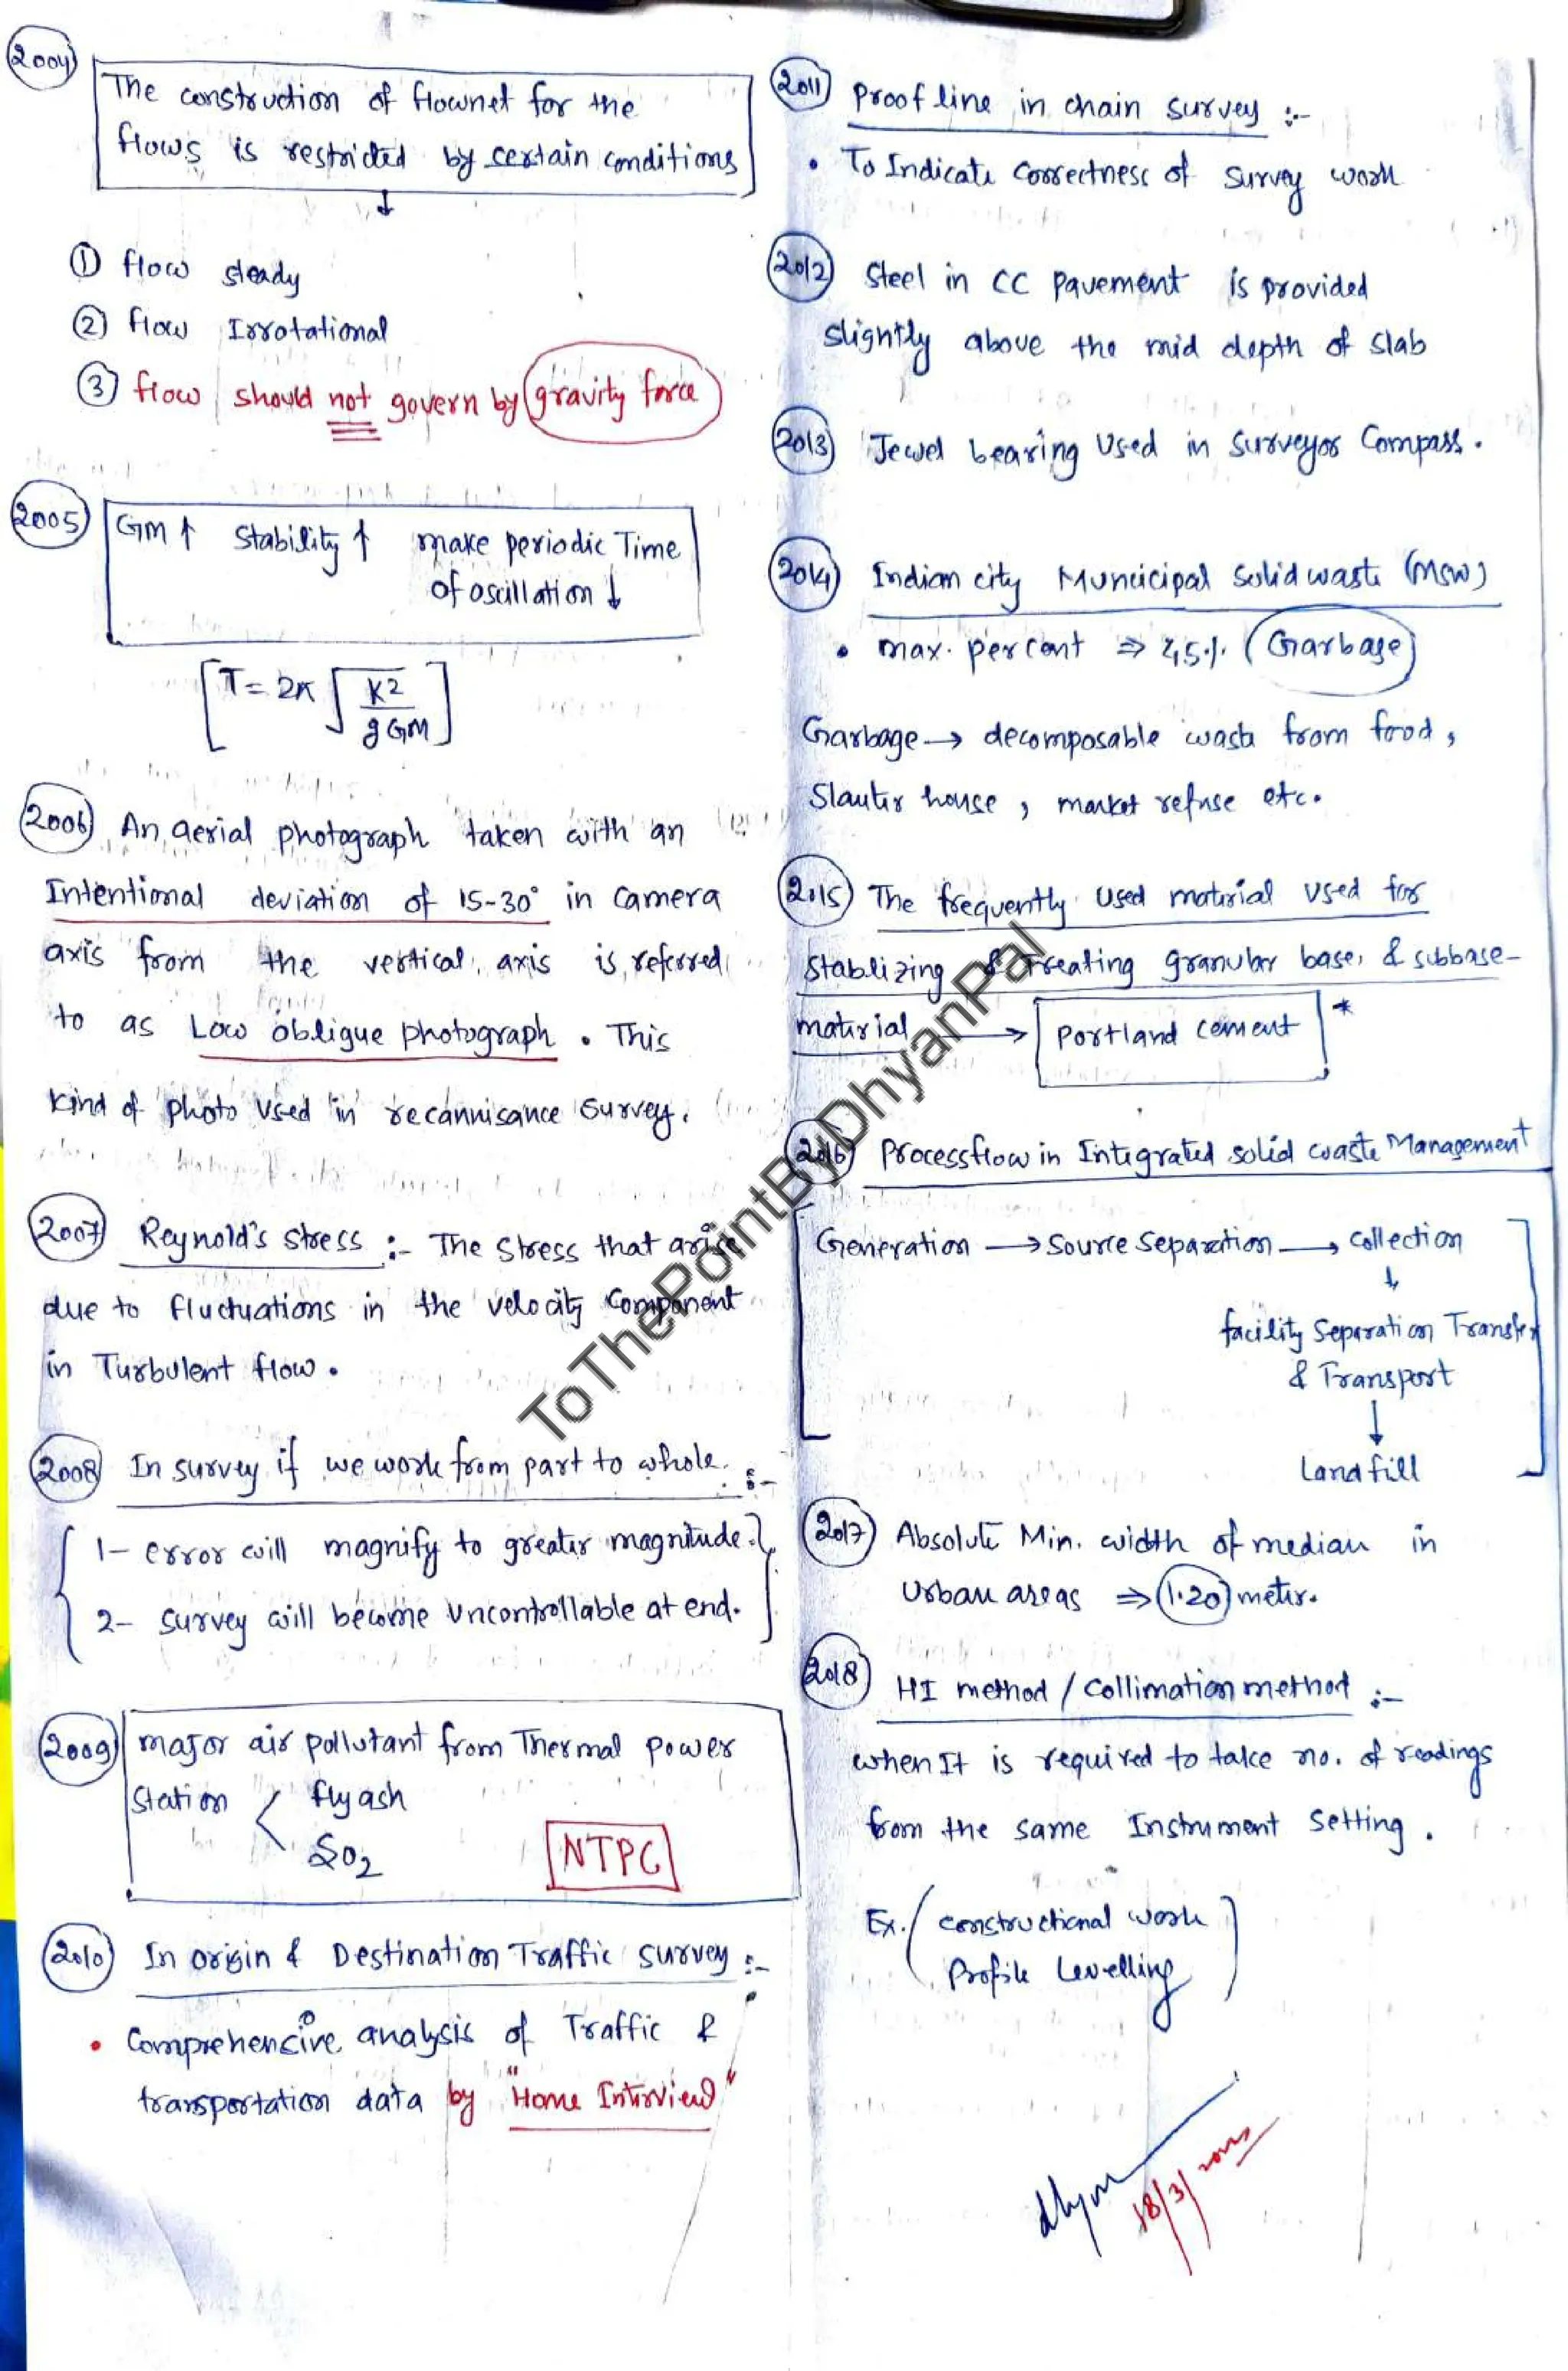 2004
The construction of flownet for the
flows is restricted by certain conditions
↓
① flow steady
② flow Irrotational
③ flow should not govern by gravity force
2005
GM ↑ Stability ↑ make periodic Time
of oscillation ↓
[T = 2π √(K2 / g GM)]
2006 An aerial photograph taken with an
Intentional deviation of 15-30° in camera
axis from the vertical axis is referred
to as Low obligue photograph . This
kind of photo used in recannisance survey.
2007 Reynold's stress :- The stress that arise
due to fluctuations in the velocity Component
in Turbulent flow .
2008 In survey if we work from part to whole. :-
1- error will magnify to greater magnitude.
2- survey will become uncontrollable at end.
2009 major air pollutant from Thermal power
station < fly ash
SO2
NTPC
2010 In origin & Destination Traffic survey :-
• Comprehensive analysis of Traffic &
transportation data by "Home Interview"
2011 Proof line in chain survey :-
• To Indicate correctness of survey work
2012 Steel in CC pavement is provided
slightly above the mid depth of slab
2013 Jewel bearing Used in Surveyor Compass.
2014 Indian city Muncicipal solid waste (MSW)
• max. percent ⇒ 45% (Garbage)
Garbage → decomposable waste from food,
Slauter house , market refuse etc.
2015 The frequently used material used for
stablizing & treating granular base, & subbase-
material → Portland cement *
2016 Processflow in Integrated solid waste Management
Generation → Source Separation → collection
↓
facility Separation Transfer
& Transport
↓
Landfill
2017 Absolute Min. width of median in
Urban areas ⇒ 1.20 meter.
2018 HI method / Collimation method :-
when It is required to take no. of readings
from the same Instrument setting .
Ex. (constructional work
Profile Levelling)
18/3/
ToThePointByDhyanPal